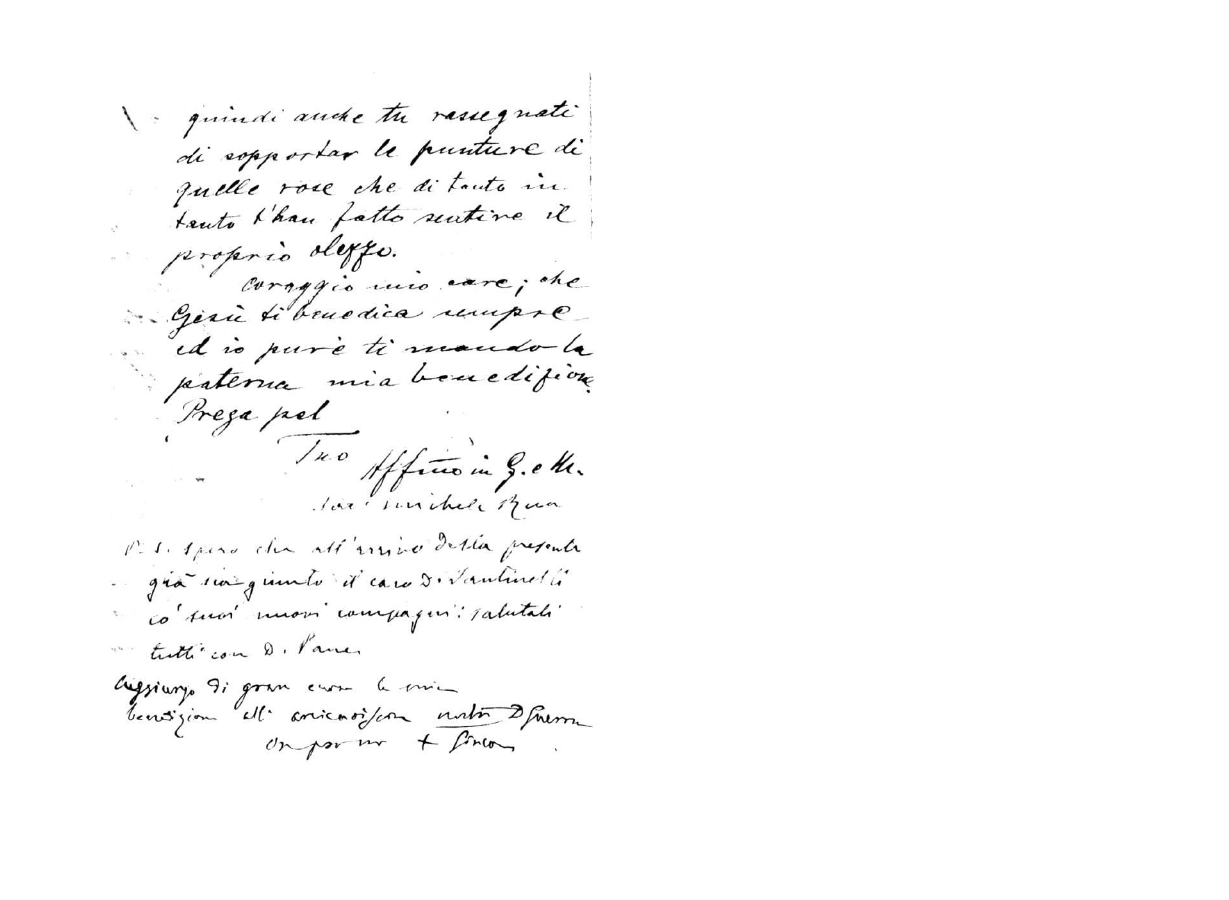 quindi anche tu rassegnati
di sopportar le punture di
quelle rose che di tanto in
tanto t'han fatto sentire il
proprio olezzo.
Coraggio mio care; che
Gesù ti benedica sempre
ed io pure ti mando la
paterna mia benedizione
Prega pel
Tuo Affmo in G. e M.
Sac. Michele Rua
P. S. Spero che all'arrivo della presente
già sia giunto il caro D. Santinelli
co' suoi nuovi compagni: salutali
tutti con D. Pane.
Aggiungo di gran cuore la mia
benedizione all' D Guerra
+